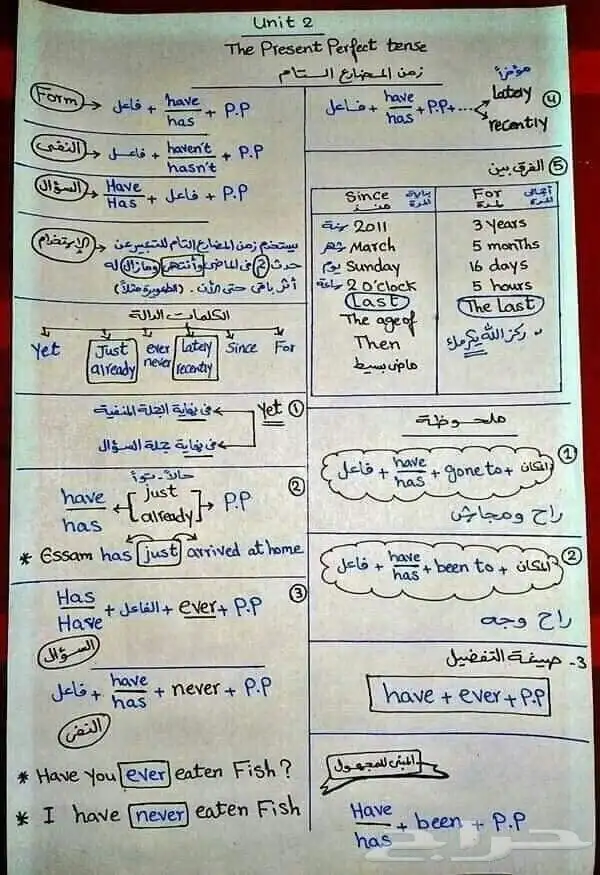 Unit 2
The Present Perfect tense
زمن المضارع التام
Form → فاعل + have/has + P.P
النفى → فاعل + haven't/hasn't + P.P
السؤال → Have/Has + فاعل + P.P
الإستخدام → يستخدم زمن المضارع التام للتعبير عن
حدث تم فى الماضى وأنتهى ومازال له
أثر باقى حتى الأن.
الكلمات الدالة
Yet Just already ever never Lately recently Since For
① Yet
فى نهاية الجملة المنفية
فى نهاية جملة السؤال
②
have/has + [just already] → P.P
* Essam has just arrived at home
③ Has/Have + الفاعل + ever + P.P
السؤال
فاعل + have/has + never + P.P
النفى
* Have you ever eaten Fish?
* I have never eaten Fish
④ مؤخراً
فاعل + have/has + P.P + .... lately
recently
⑤ الفرق بين
Since منذ بداية المدة
For لمدة
سنة 2011
شهر March
يوم Sunday
ساعة 2 O'clock
Last
The age of
Then
ماضى بسيط
3 years
5 months
16 days
5 hours
The Last
ملحوظة
① فاعل + have/has + gone to + المكان
راح ومجاش
② فاعل + have/has + been to + المكان
راح وجه
3- صيغة التفضيل
have + ever + P.P
المبنى للمجهول
Have/has + been + P.P
حراج